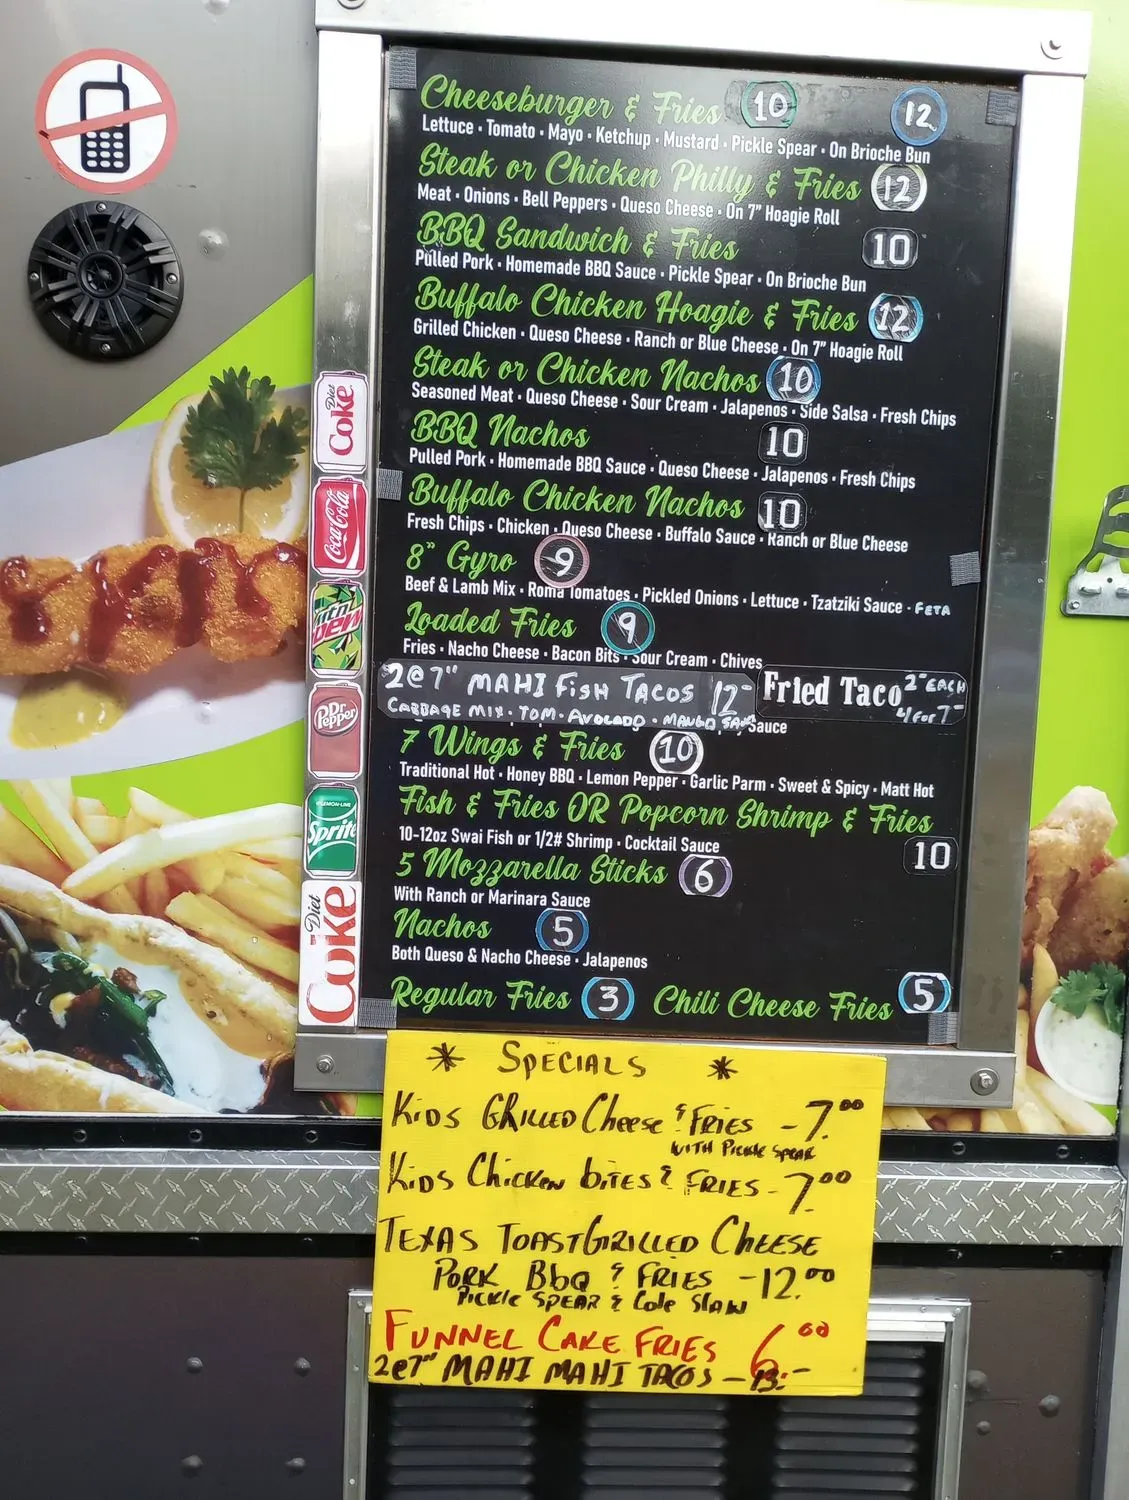 Cheeseburger & Fries 10 12
Lettuce · Tomato · Mayo · Ketchup · Mustard · Pickle Spear · On Brioche Bun
Steak or Chicken Philly & Fries 12
Meat · Onions · Bell Peppers · Queso Cheese · On 7" Hoagie Roll
BBQ Sandwich & Fries 10
Pulled Pork · Homemade BBQ Sauce · Pickle Spear · On Brioche Bun
Buffalo Chicken Hoagie & Fries 12
Grilled Chicken · Queso Cheese · Ranch or Blue Cheese · On 7" Hoagie Roll
Steak or Chicken Nachos 10
Seasoned Meat · Queso Cheese · Sour Cream · Jalapenos · Side Salsa · Fresh Chips
BBQ Nachos 10
Pulled Pork · Homemade BBQ Sauce · Queso Cheese · Jalapenos · Fresh Chips
Buffalo Chicken Nachos 10
Fresh Chips · Chicken · Queso Cheese · Buffalo Sauce · Ranch or Blue Cheese
8" Gyro 9
Beef & Lamb Mix · Roma Tomatoes · Pickled Onions · Lettuce · Tzatziki Sauce · FETA
Loaded Fries 9
Fries · Nacho Cheese · Bacon Bits · Sour Cream · Chives
2@7" MAHI FISH TACOS 12-
CABBAGE MIX · TOM · AVOCADO · MANGO
Fried Taco 2- EACH
4 for 7-
Sauce
7 Wings & Fries 10
Traditional Hot · Honey BBQ · Lemon Pepper · Garlic Parm · Sweet & Spicy · Matt Hot
Fish & Fries OR Popcorn Shrimp & Fries
10-12oz Swai Fish or 1/2# Shrimp · Cocktail Sauce 10
5 Mozzarella Sticks 6
With Ranch or Marinara Sauce
Nachos 5
Both Queso & Nacho Cheese · Jalapenos
Regular Fries 3 Chili Cheese Fries 5
Diet Coke
Coca-Cola
mtn dew
Dr Pepper
LEMON-LIME
Sprite
Diet Coke
* SPECIALS *
KIDS GRILLED CHEESE & FRIES - 7.00
WITH PICKLE SPEAR
KIDS CHICKEN BITES & FRIES - 7.00
TEXAS TOAST GRILLED CHEESE
PORK BBQ & FRIES - 12.00
PICKLE SPEAR & COLE SLAW
FUNNEL CAKE FRIES 6.00
2@7" MAHI MAHI TACOS - 13.-